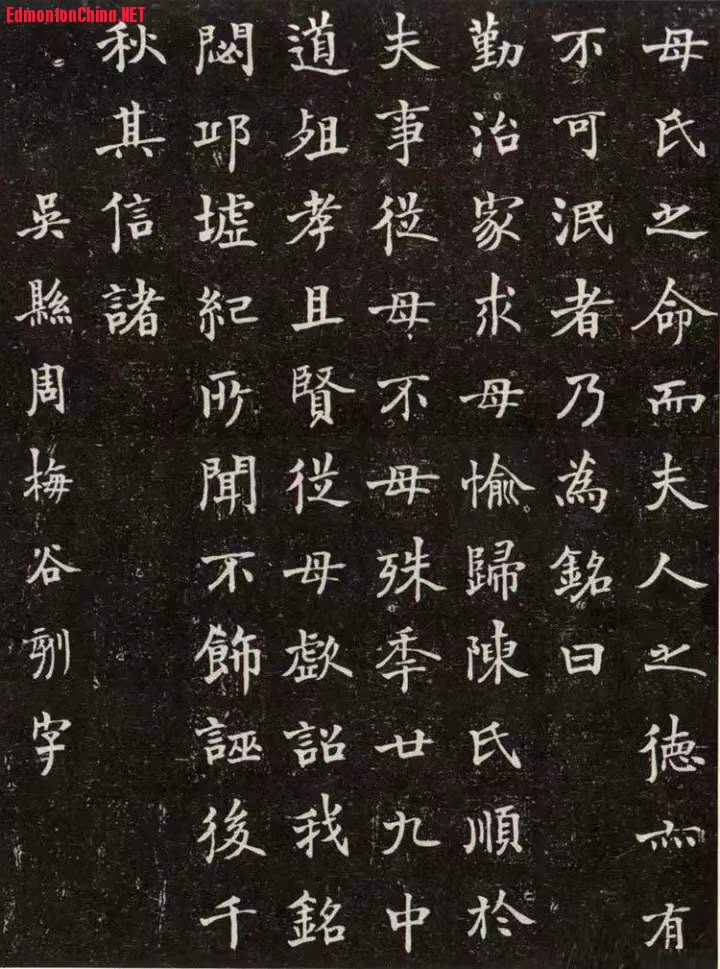 EdmontonChina.NET
母氏之命而夫人之德亦有
不可泯者乃為銘曰
勤治家求母愉歸陳氏順於
夫事從母不母殊年廿九中
道殂孝且賢從母戲詔我銘
閟邱墟紀所聞不飾誣後千
秋其信諸
吳縣周梅谷刻字